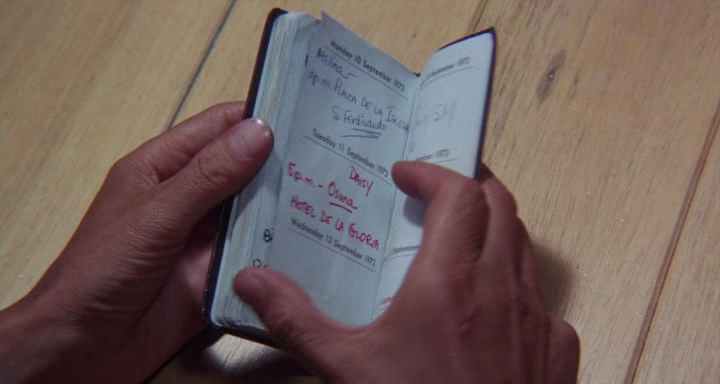 Monday 10 September 1973
Melina -
3p.m. PLAZA DE LA IGLESIA
S Ferdinando
Tuesday 11 September 1973
DAISY
5p.m. - Osuna
HOTEL DE LA GLORIA
Wednesday 12 September 1973
September 1973